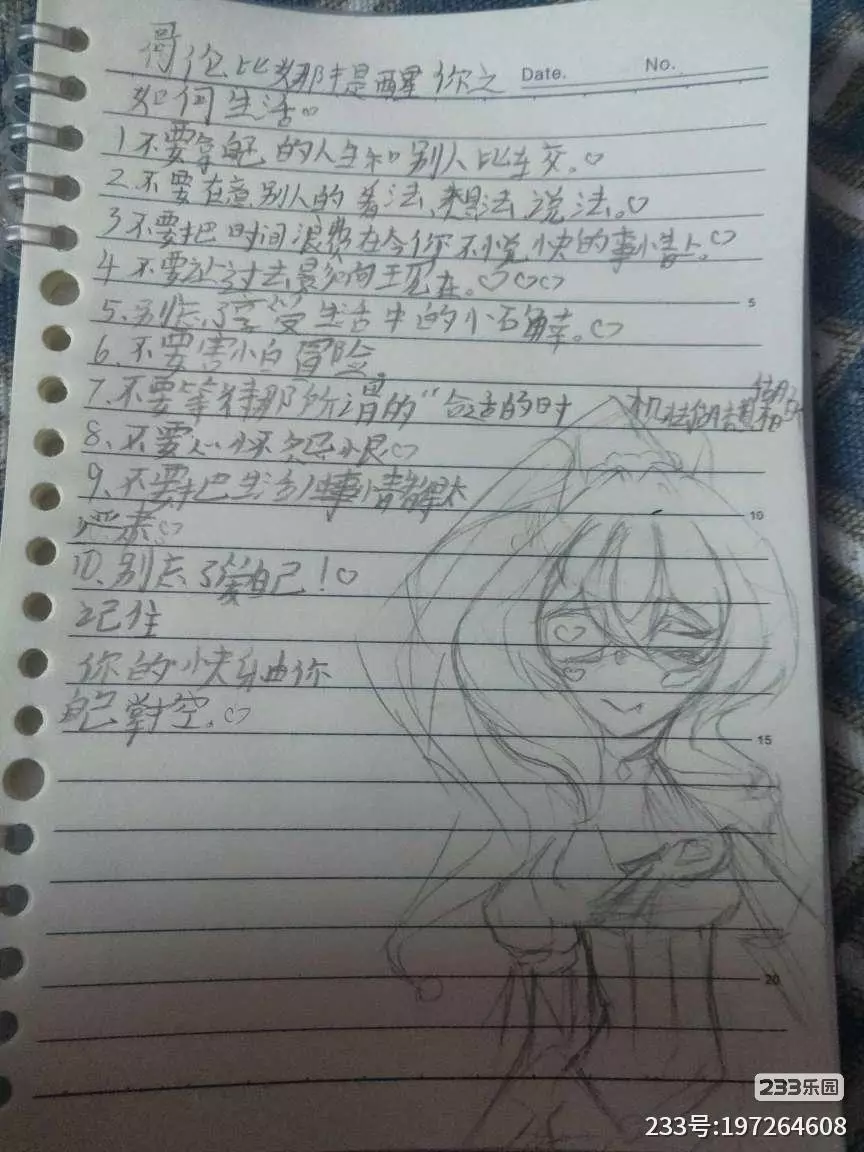 哥伦比娅提醒你之
Date. No.
如何生活。♡
1 不要拿自己的人生和别人比较。♡
2.不要在意别人的看法、想法、说法。♡
3不要把时间浪费在令你不悦快的事情上。♡
4 不要让过去影响现在。♡♡♡
5.别忘了享受生活中的小
6.不要害怕冒险。
7.不要等待那所谓的“合适的时机
8.不要心怀怨恨♡
9.不要把生活
严肃♡
10.别忘了爱自己!♡
记住
你的快乐由你
自己掌控。♡
5
10
15
20
233乐园
233号:197264608